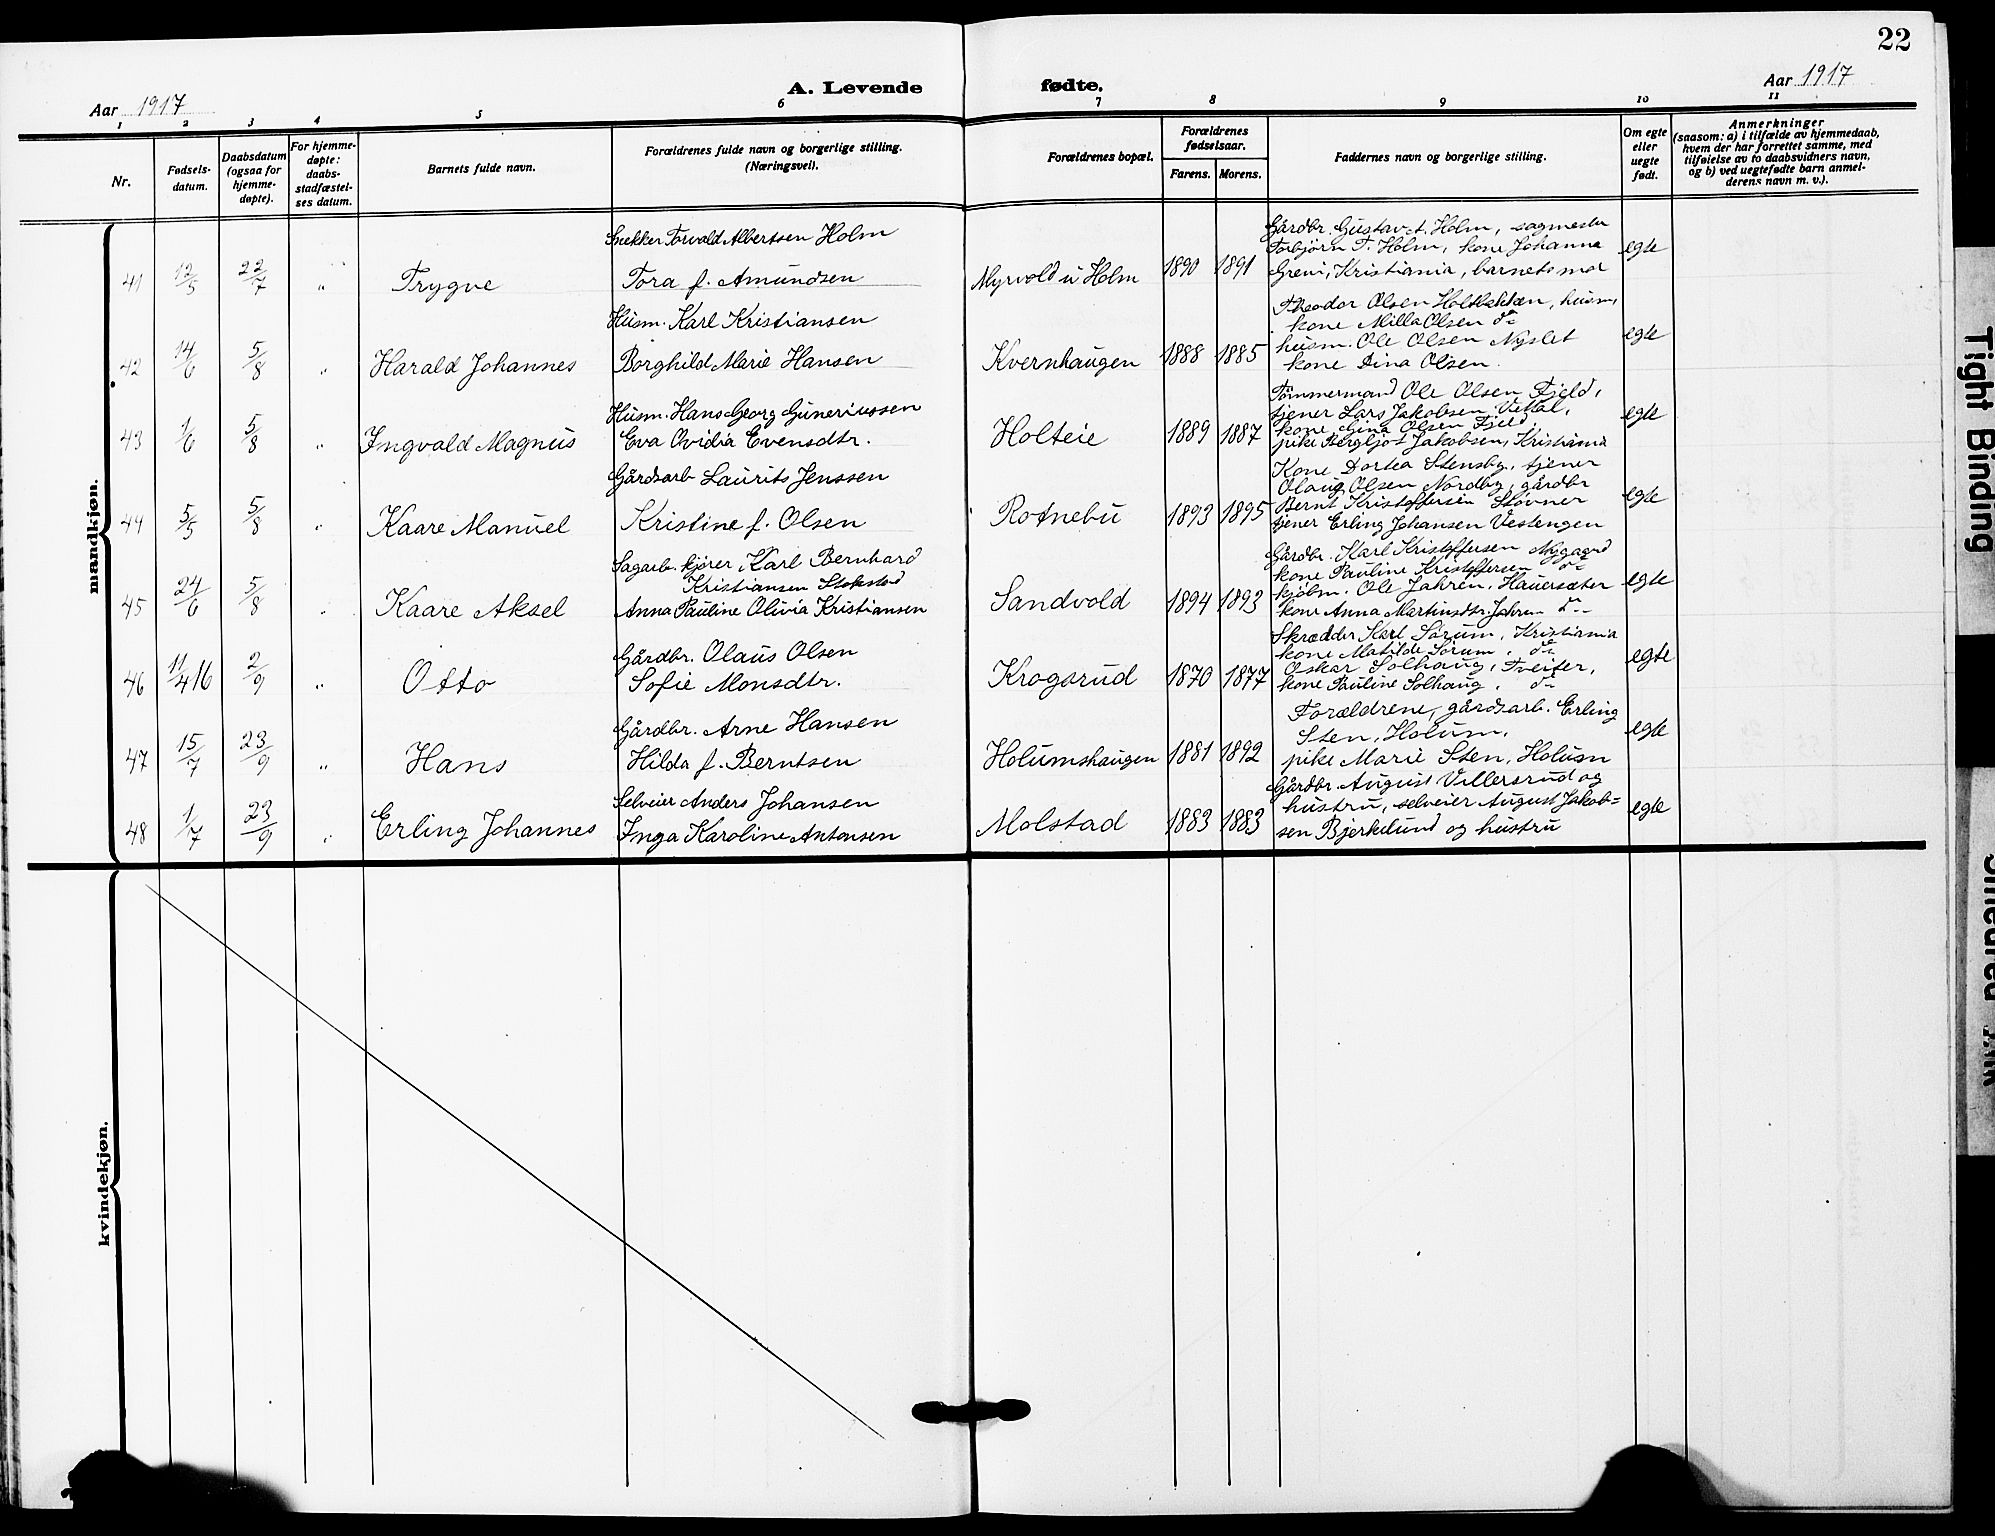 22
A. Levende fødte.
Aar 1917
Aar 1917
1 2 3 4 5 6 7 8 9 10 11
Nr.
Fødsels-
datum.
Daabsdatum
(ogsaa for
hjemme-
døpte).
For hjemme-
døpte:
daabs-
stadfæstel-
ses datum.
Barnets fulde navn.
Forældrenes fulde navn og borgerlige stilling.
(Næringsvei).
Forældrenes bopæl.
Forældrenes
fødselsaar.
Farens. Morens.
Faddernes navn og borgerlige stilling.
Om egte
eller
uegte
født.
Anmerkninger
(saasom: a) i tilfælde av hjemmedaab,
hvem der har forrettet samme, med
tilføielse av to daabsvidners navn,
og b) ved uegtefødte barn anmel-
derens navn m. v.).
mandkjøn.
41 12/5 22/7 " Trygve
Snekker Torvald Albertsen Holm
Tora f. Amundsen
Myrvold u Holm 1890 1891
Gårdbr. Gustav T. Holm, sagmester
Torbjörn T. Holm, kone Johanne
Greni, Kristiania, barnets mor
egte
42 14/6 5/8 " Harald Johannes
Husm. Karl Kristiansen
Borghild Marie Hansen
Kvernhaugen 1888 1885
Theodor Olsen Holtbakken, husm.
kone Milla Olsen do
husm. Ole Olsen Nyslet
kone Dina Olsen.
egte
43 1/6 5/8 " Ingvald Magnus
Husm. Hans Georg Guneriussen
Eva Ovidia Evensdtr.
Holteie 1889 1887
Tömmermand Ole Olsen Fjeld,
tjener Lars Jakobsen
kone Gina Olsen Fjeld
pike Bergljot Jakobsen, Kristiania
egte
44 5/5 5/8 " Kaare Manuel
Gårdsarb Laurits Jenssen
Kristine f. Olsen
Rotnebu 1893 1895
Kone Dortea Stensby, tjener
Olaug Olsen Nordby, gårdbr
Bernt Kristoffersen Stovner
tjener Erling Johansen Vestengen
egte
45 24/6 5/8 " Kaare Aksel
Sagarb. kjører Karl Bernhard
Kristiansen Stokstad
Anna Pauline Olivia Kristiansen
Sandvold 1894 1893
Gårdbr. Karl Kristoffersen Nygaard
kone Pauline Kristoffersen do
kjöbm. Ole Jahren, Hauersæter
kone Anna Martinsdtr. Jahren do
egte
46 11/4 16 2/9 " Otto
Gårdbr. Olaus Olsen
Sofie Monsdtr.
Krogsrud 1870 1877
Skrædder Karl Sörum, Kristiania
kone Matilde Sörum, do
Oskar Solhaug, Tveiter,
kone Pauline Solhaug, do
egte
47 15/7 23/9 " Hans
Gårdbr. Arne Hansen
Hilda f. Berntsen
Holumshaugen 1881 1892
Forældrene, gårdsarb. Erling
Sten, Holum,
pike Marie Sten, Holum
egte
48 1/7 23/9 " Erling Johannes
Selveier Anders Johansen
Inga Karoline Antonsen
Molstad 1883 1883
Gårdbr. August Villersrud og
hustru, selveier August Jakob=
sen Bjerkelund og hustru
egte
kvindekjøn.
Tight Binding